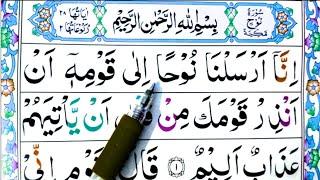 سُوْرَةُ نُوْحٍ مَكِّيَّةٌ
بِسْمِ اللّٰهِ الرَّحْمٰنِ الرَّحِيْمِ
اٰيَاتُهَا ٢٨
رُكُوْعَاتُهَا ٢
اِنَّاۤ اَرْسَلْنَا نُوْحًا اِلٰى قَوْمِهٖۤ اَنْ
اَنْذِرْ قَوْمَكَ مِنْ اَنْ يَّاْتِيَهُمْ
عَذَابٌ اَلِيْمٌ ١ قَالَ قَوْمِ اِنِّيْ